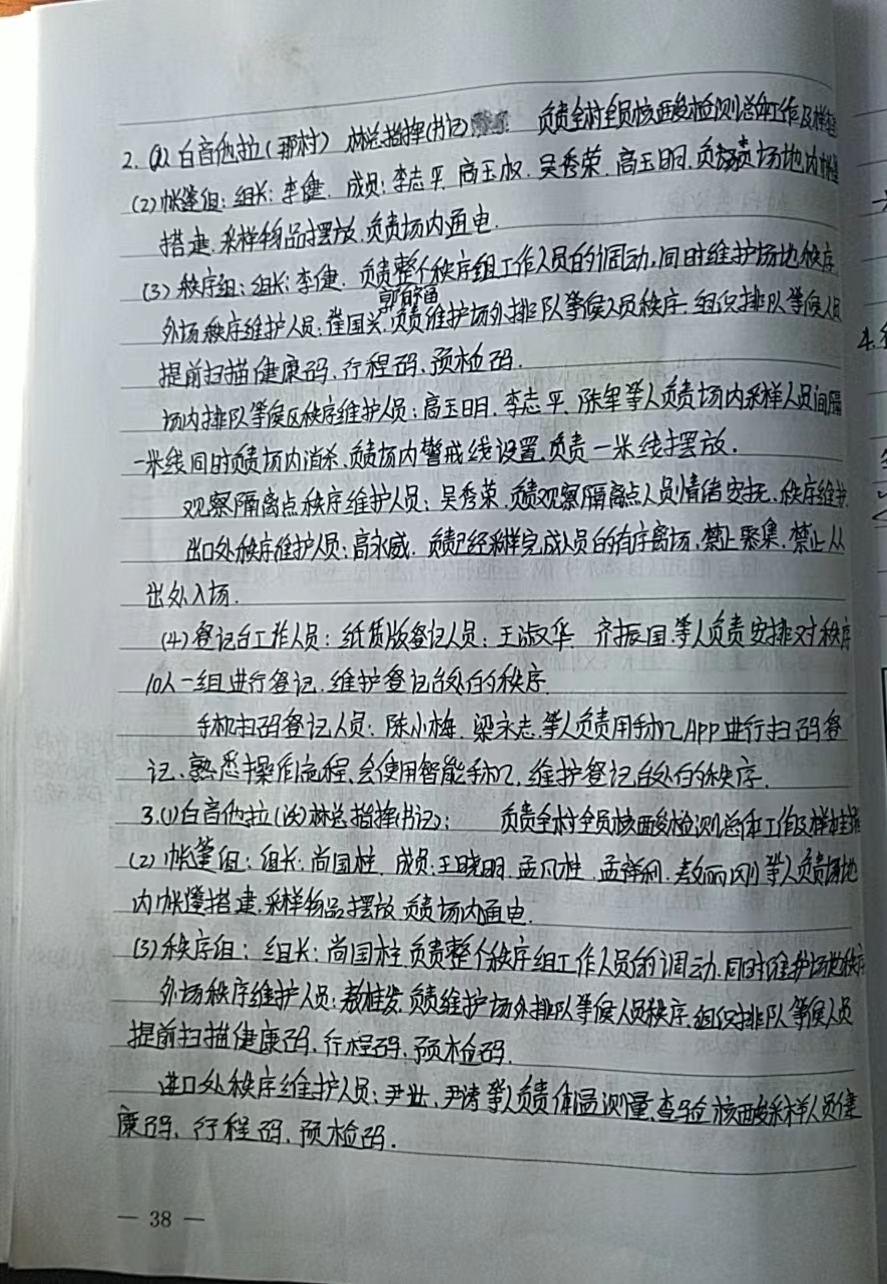 2. (1) 白音他拉(那村) 林总指挥(书记) 负责全村全员核酸检测总体工作及样
(2)帐篷组：组长：李健. 成员：李志平. 商玉权. 吴秀荣. 高玉明. 负责场地内帐篷
搭建. 采样物品摆放. 负责场内通电.
(3) 秩序组：组长：李健. 负责整个秩序组工作人员的调动,同时维护场地秩序
郭有富
外场秩序维护人员：崔国兴. 负责维护场外排队等候人员秩序. 组织排队等候人员
提前扫描健康码. 行程码. 预检码.
场内排队等候区秩序维护人员：高玉明. 李志平. 陈军等人负责场内采样人员间隔
一米线同时负责场内消杀. 负责场内警戒线设置. 负责一米线摆放.
观察隔离点秩序维护人员：吴秀荣. 负责观察隔离点人员情绪安抚. 秩序维护
出口处秩序维护人员：高永威. 负责已经采样完成人员的有序离场. 禁止聚集. 禁止从
出处入场.
(4)登记台工作人员：纸质版登记人员：王淑华 齐振国.等人负责安排对秩序
10人一组进行登记. 维护登记台处的秩序.
手机扫码登记人员：陈小梅. 梁永志.等人负责用手机APP进行扫码登
记. 熟悉操作流程. 会使用智能手机. 维护登记台处的秩序.
3.(1)白音他拉(沃)林总指挥(书记)： 负责全村全员核酸检测总体工作及样
(2) 帐篷组：组长：尚国柱. 成员：王晓明. 孟凡胜. 孟祥利. 敖丽刚等人负责场地
内帐篷搭建. 采样物品摆放. 负责场内通电.
(3)秩序组：组长：尚国柱.负责整个秩序组工作人员的调动.同时维护场地秩序
外场秩序维护人员：敖桂发. 负责维护场外排队等候人员秩序. 组织排队等候人员
提前扫描健康码. 行程码. 预检码.
进口处秩序维护人员：尹壮. 尹涛等人负责体温测量. 查验核酸采样人员健
康码. 行程码. 预检码.
— 38 —